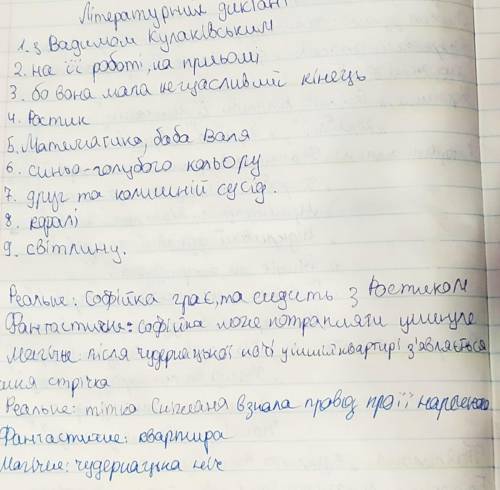 Літературний диктант
1. з Вадимом Кулаківським
2. на її роботі, на прийомі
3. бо вона мала нещасливий кінець
4. Ростик
5. Математика, баба Валя
6. синьо-голубого кольору
7. друг та колишній сусід.
8. коралі
9. світлину.
Реальне: Софійка грає, та сидить з Ростиком
Фантастичне: софійка може потрапляти у минуле
Магічне: після чудернацької ночі у іншій квартирі з'являється
стрічка
Реальне: тітка Сніжана взнала правду про її
Фантастичне: квартира
Магічне: чудернацька ніч